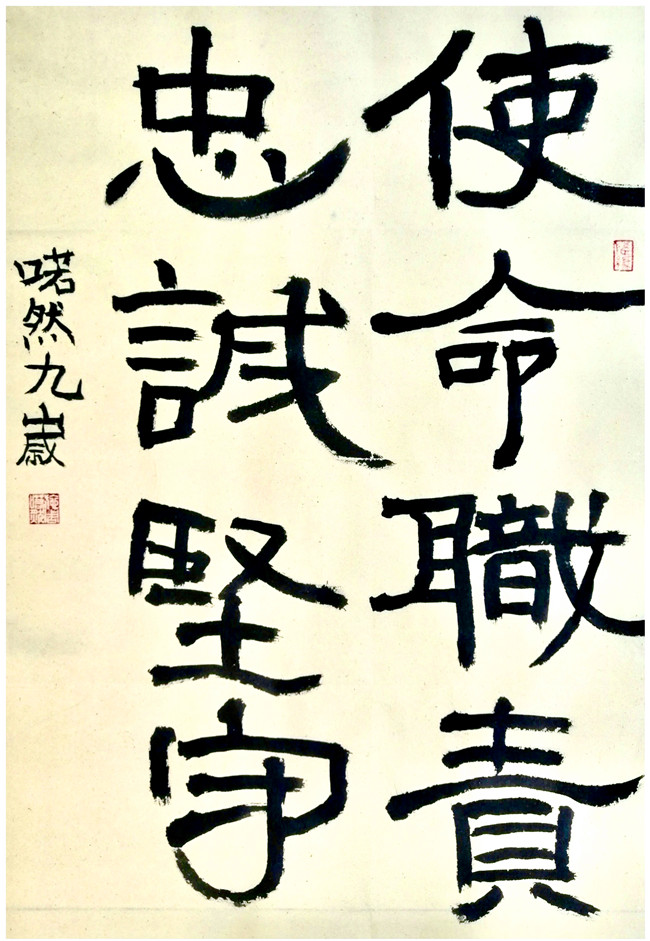 使命職責
忠誠堅守
喏然九歲